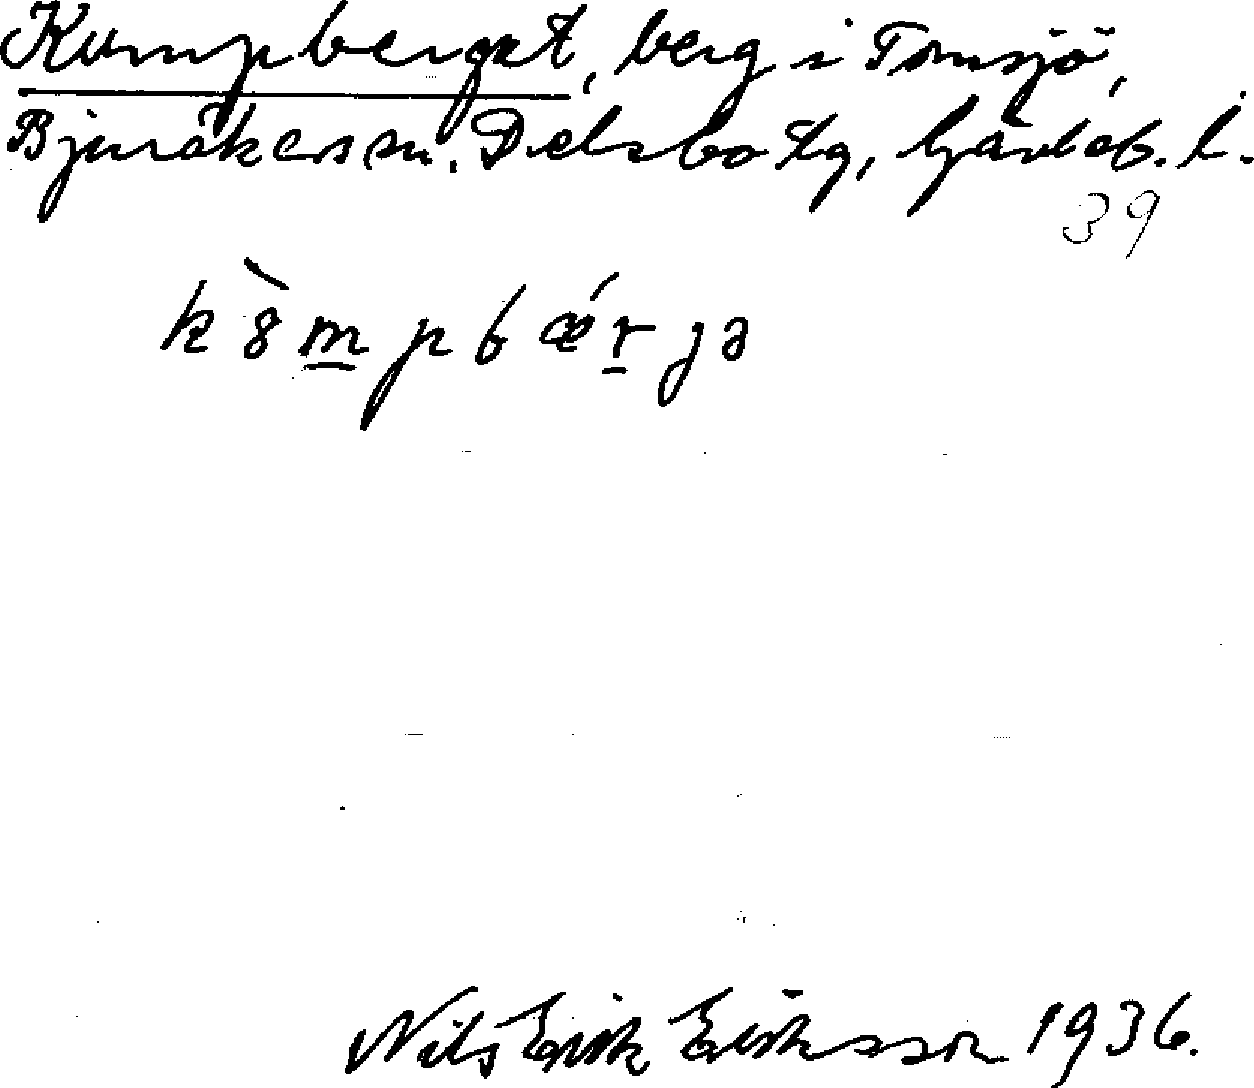 Kumpberget, berg i Tomsjö,
Bjuråkers sn. Delsbo tg, Gävleb. l.
39
kȣ̀mpbǽrjə
Nils Erik Eriksson 1936.